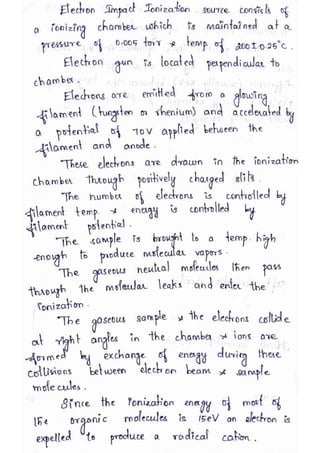 Electron Impact Ionization source consists of
a ionizing chamber which is maintained at a
pressure of 0.005 torr & temp. of 200±0.25°C.
Electron gun is located perpendicular to
chamber.
Electrons are emitted from a glowing
filament (tungsten or rhenium) and accelerated by
a potential of 70V applied between the
filament and anode.
These electrons are drawn in the ionization
chamber through positively charged slits.
The number of electrons is controlled by
filament temp. & energy is controlled by
filament potential.
The sample is brought to a temp. high
enough to produce molecular vapors.
The gaseous neutral molecules then pass
through the molecular leaks and enter the
ionization.
The gaseous sample & the electrons collide
at right angles in the chamber & ions are
formed by exchange of energy during these
collisions between electron beam & sample
molecules.
Since the ionization energy of most of
the organic molecules is 15eV an electron is
expelled to produce a radical cation.